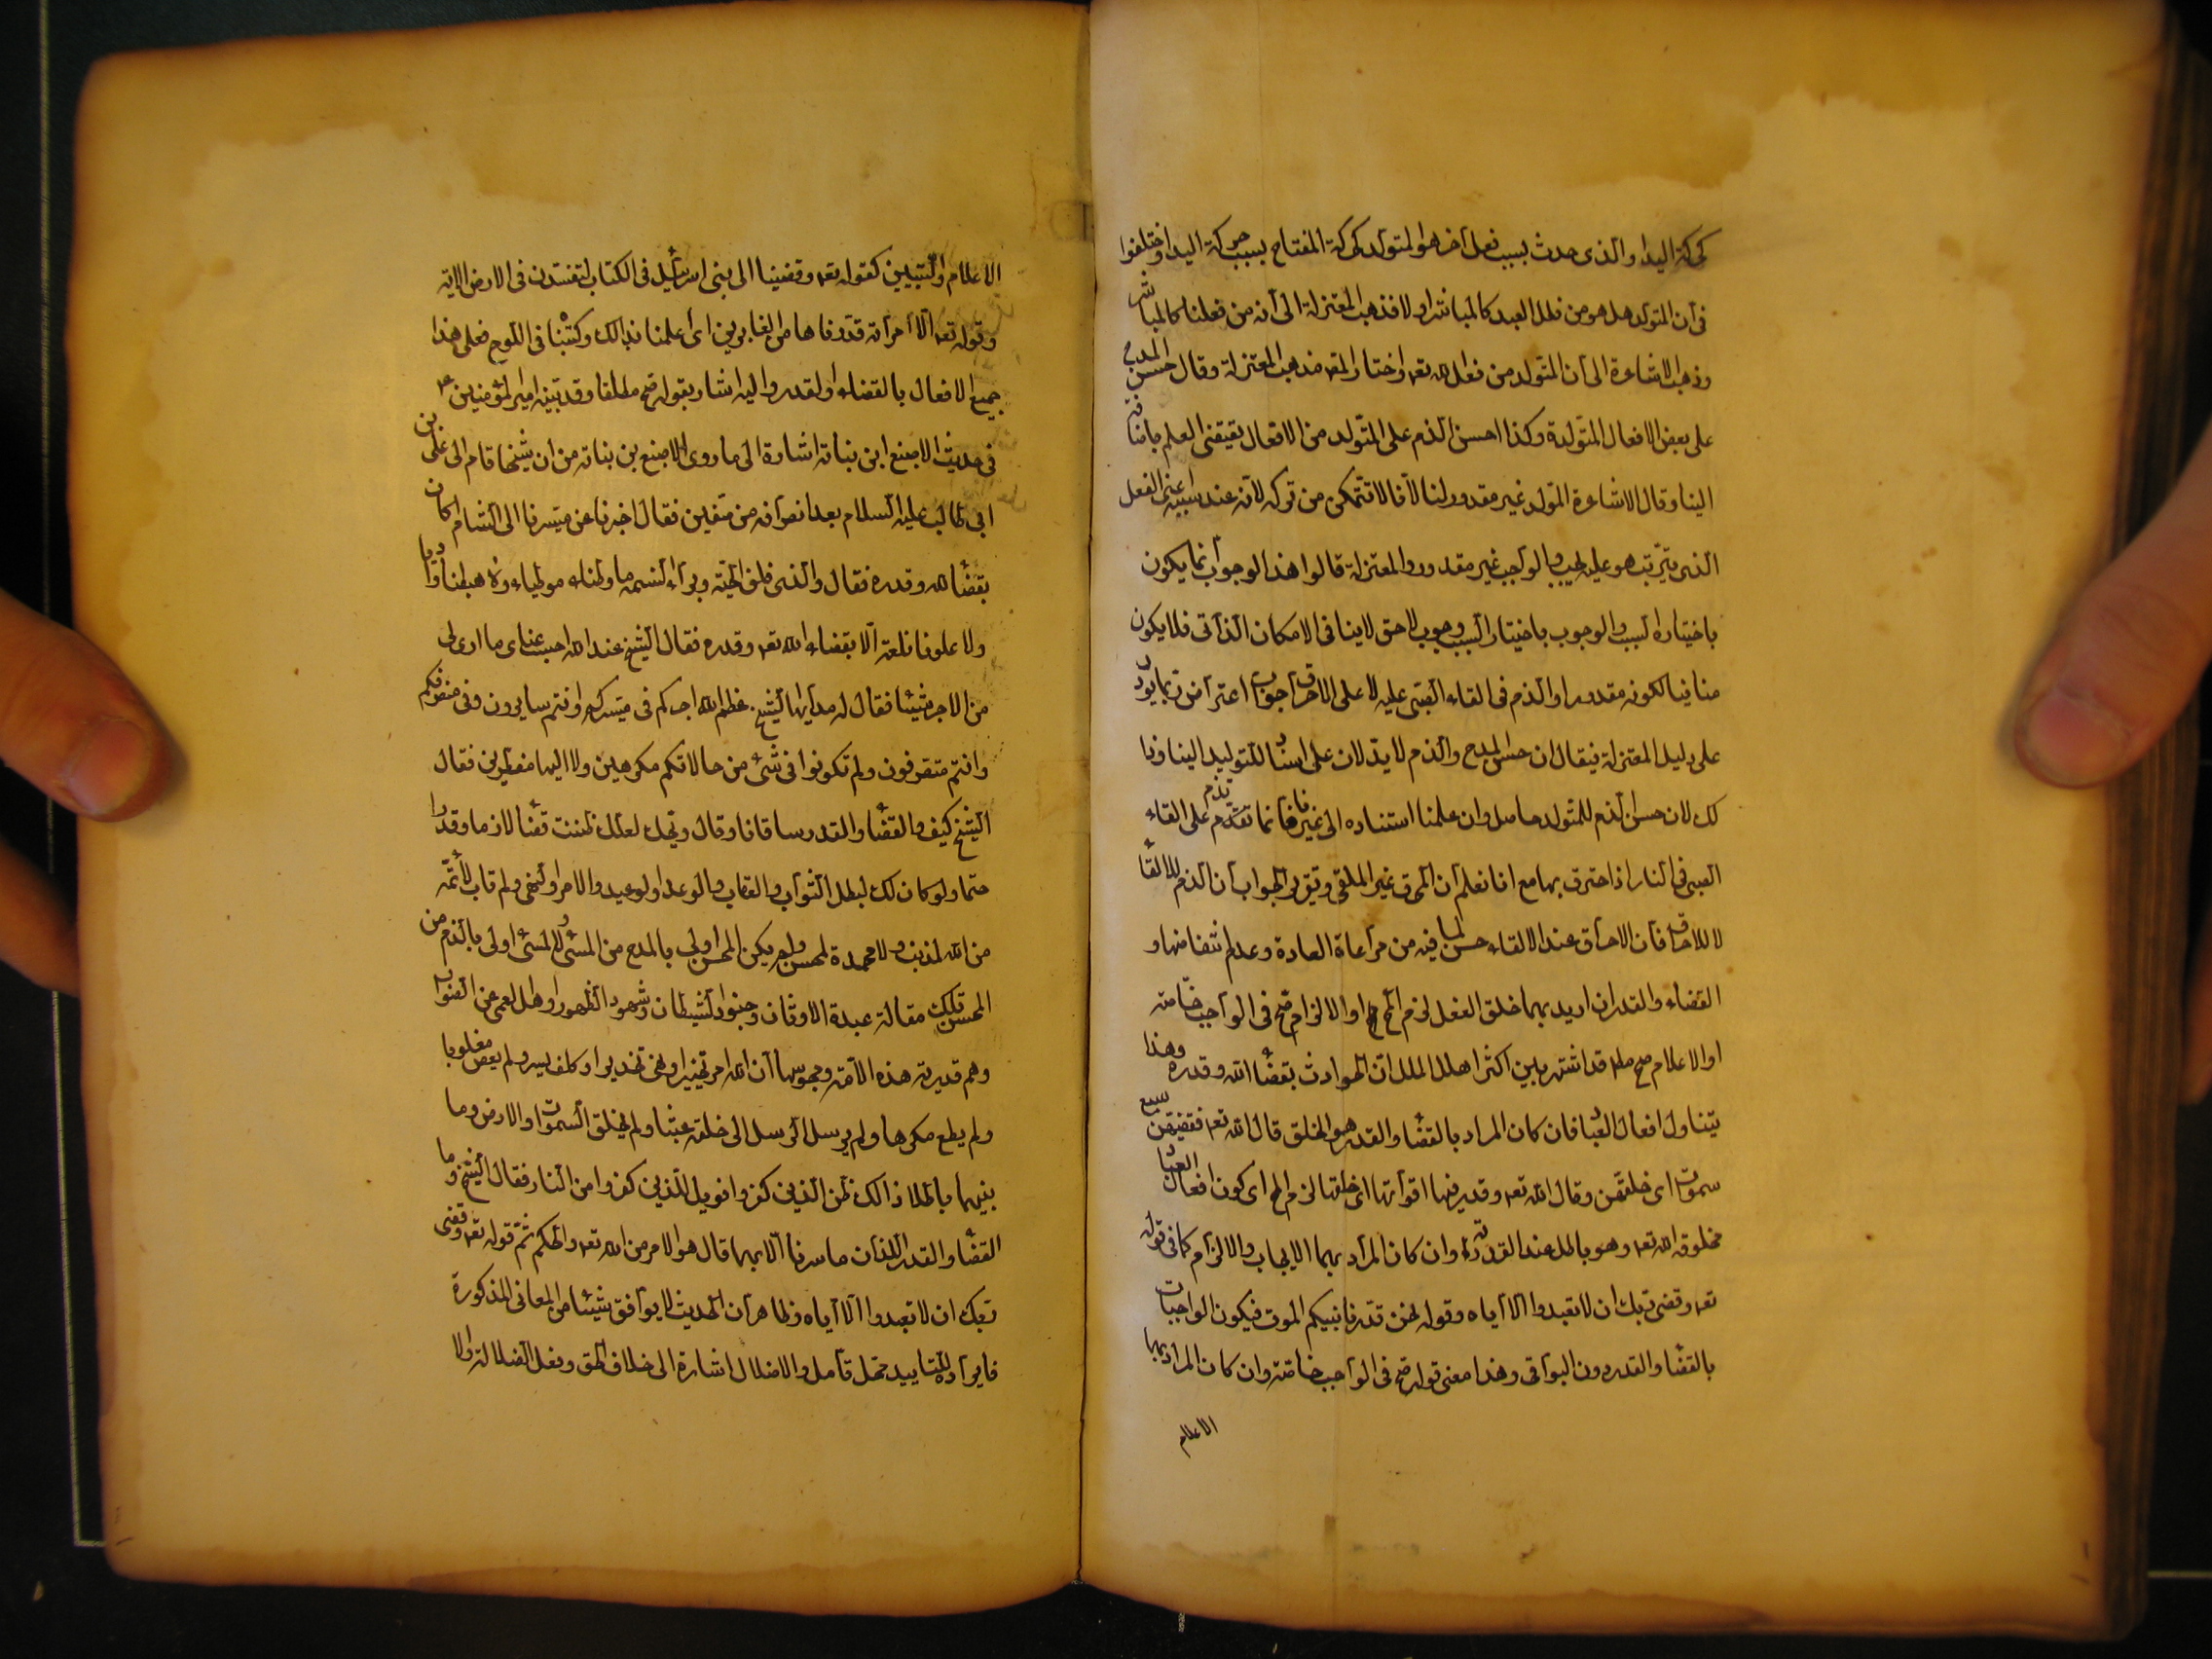 كحركة اليد او الذى حدث بسبب فعل آخر هو المتولد كحركة المفتاح بسبب حركة اليد واختلفوا
فى أن المتولد هل هو من فعل العبد كالمباشر او لا فذهب المعتزلة الى أنه من فعلنا كالمباشر
وذهب الاشاعرة الى ان المتولد من فعل الله تعه واختار المصه مذهب المعتزلة وقال حسن المدح
على بعض الافعال المتولدة وكذا احسن الذم على المتولد من الافعال يقتضى العلم باضافته
الينا وقال الاشاعرة المتولد غير مقدور لنا لأنا لا نتمكن من تركه لانه عند سببه اعنى الفعل
الذى يترتب هو عليه يجب والواجب غير مقدور والمعتزلة قالوا هذا الوجوب انما يكون
باختياره السبب والوجوب باختيار السبب وجوب لاحق لا ينافى الامكان الذاتى فلا يكون
منافيا لكونه مقدورا والذم فى القاء الصبى عليه لا على الاحراق جواب اعتراض ربما يورد
على دليل المعتزلة فيقال ان حسن المدح والذم لا يدلان على اسناد المتوليد الينا وذا
لك لان حسن الذم للمتولد حاصل وان علمنا استناده الى غيرنا فانما نذم على القاء
الصبى فى النار اذا احترق بها مع انا نعلم أن المحرق غير الملقى وتقرير الجواب أن الذم للالقاء
لا للاحراق فان الاحراق عند الالقاء حسن لما فيه من مراعاة العادة وعدم انتقاضها و
القضاء والقدر ان اريد بهما خلق الفعل لزم المح او الالزام صح فى الواجب خاصة
او الاعلام صح مطه قد اشتهر بين اكثر اهل الملل ان الحوادث بقضاء الله وقدره وهذا
يتناول افعال العباد فان كان المراد بالقضاء والقدر هو الخلق قال الله تعه فقضيهن سبع
سموات اى خلقهن وقال الله تعه وقدر فيها اقواتها اى خلقها لزم المح اى كون افعال العباد
مخلوقة الله تعه وهو باطل عند القدرية وان كان المراد بهما الايجاب والالزام كما فى قوله
تعه وقضى ربك ان لا تعبدوا الا اياه وقوله نحن قدرنا بينكم الموت فيكون الواجبات
بالقضاء والقدر دون البواقى وهذا معنى قوله صح فى الواجب خاصة وان كان المراد بهما
الاعلام
الاعلام والتبيين كقوله تعه وقضينا الى بنى اسرائيل فى الكتاب لتفسدن فى الارض الاية
وقوله تعه الا امرأته قدرناها من الغابرين اى اعلمنا بذالك وكتبنا فى اللوح فعلى هذا
جميع الافعال بالقضاء والقدر واليه اشار بقوله صح مطلقا وقد بينه امير المؤمنين عه
فى حديث الاصبغ ابن نباتة اشارة الى ما روى الاصبغ بن نباتة من ان شيخا قام الى على بن
ابى طالب عليه السلام بعد انصرافه من صفين فقال اخبرنا عن مسيرنا الى الشام اكان
بقضاء الله وقدره فقال والذى فلق الحبة وبرأ النسمة ما وطئنا موطياء ولا هبطنا واديا
ولا علونا تلعة الا بقضاء الله تعه وقدره فقال الشيخ عند الله احتسب عناى ما ارى لى
من الاجر شيئا فقال له مه ايها الشيخ عظم الله اجركم فى مسيركم وانتم سايرون وفى منصرفكم
وانتم منصرفون ولم تكونوا فى شئ من حالاتكم مكرهين ولا اليها مضطرين فقال
الشيخ كيف والقضاء والقدر ساقانا وقال ويحك لعلك ظننت قضاء لازما وقدرا
حتما ولو كان لك لبطل الثواب والعقاب والوعد والوعيد والامر والنهى ولم تات لائمة
من الله لمذنب ولا محمدة لمحسن ولم يكن المحسن اولى بالمدح من المسئ ولا المسئ اولى بالذم من
المحسن تلك مقالة عبدة الاوثان وجنود الشيطان وشهود الزور واهل العمى عن الصواب
وهم قدرية هذه الامة ومجوسها ان الله امر تخييرا ونهى تحذيرا وكلف يسيرا ولم يعص مغلوبا
ولم يطع مكرها ولم يرسل الرسل الى خلقه عبثا ولم يخلق السموات والارض وما
بينهما باطلا ذالك ظن الذين كفروا فويل للذين كفروا من النار فقال الشيخ وما
القضاء والقدر اللذان ما سرنا الا بهما قال هو الامر من الله تعه والحكم ثم تلا قوله تعه وقضى
ربك ان لا تعبدوا الا اياه وظاهر أن الحديث لا يوافق شيئا من المعانى المذكورة
فايراده للتاييد محل تأمل والاضلال اشارة الى خلاف الحق وفعل الضلالة والا